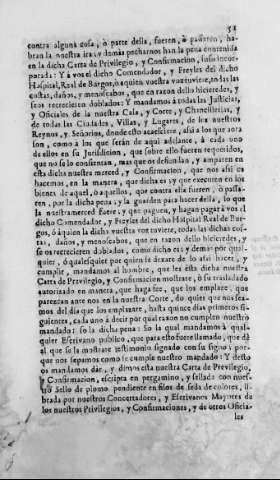 51
contra alguna cosa, ò parte della, fueren, ò passaren, ha-
bran la nuestra ira; y demàs pecharnos han la pena contenida
en la dicha Carta de Privilegio, y Confirmacion, suso incor-
porada: Y à vos el dicho Comendador, y Freyles del dicho
Hospital Real de Burgos, ò à quien vuestra voz tuviere, todas las
costas, daños, y menoscabos, que en razon dello hicieredes, y
se os recrecieren doblados: Y mandamos à todas las Justicias,
y Oficiales de la nuestra Casa, y Corte, y Chancillerias, y
de todas las Ciudades, Villas, y Lugares, de los nuestros
Reynos, y Señorios, donde esto acaesciere, asi à los que aora
son, como à los que seràn de aqui adelante, à cada uno
de ellos en su Jurisdicion, que sobre ello fueren requeridos,
que no se lo consientan, mas que os defiendan, y amparen en
esta dicha nuestra merced, y Confirmacion, que nos asi os
hacemos, en la manera, que dicha es; y que executen en los
bienes de aquel, ò aquellos, que contra ella fueren, ò passa-
ren, por la dicha pena; y la guarden para hacer della, lo que
la nuestra merced fuere, y que paguen, y hagan pagar à vos el
dicho Comendador, y Freyles del dicho Hospital Real de Bur-
gos, ò à quien la dicha vuestra voz tuviere, todas las dichas cos-
tas, daños, y menoscabos, que en razon dello hicieredes, y
se os recrecieren doblados, como dicho es; y demàs por qual-
quier, ò qualesquier por quien se dexare de lo asi hacer, y
cumplir, mandamos al hombre, que les esta dicha nuestra
Carta de Privilegio, y Confirmacion mostrare, ò su traslado
autorizado en manera, que haga fee, que los emplace, que
parezcan ante nos en la nuestra Corte, do quier que nos sea-
mos del dia que los emplazare, hasta quince dias primeros si-
guientes, cada uno à decir por qual razon no cumplen nuestro
mandado: so la dicha pena: So la qual mandamos à qual-
quier Escrivano publico, que para esto fuere llamado, que dè
al que se la mostrare testimonio signado con su signo; por-
que nos sepamos como se cumple nuestro mandado: Y desto
os mandamos dar, y dimos esta nuestra Carta de Previlegio,
y Confirmacion, escripta en pergamino, y sellada con nues-
tro Sello de plomo pendiente en filos de seda de colores, li-
brada por nuestros Concertadores, y Escrivanos Mayores de
los nuestros Privilegios, y Confirmaciones, y de otros Oficia-
les